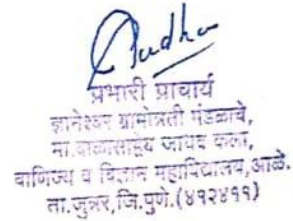 प्रभारी प्राचार्य
ज्ञानेश्वर ग्रामोन्नती मंडळाचे,
मा.बाळासाहेब जाधव कला,
वाणिज्य व विज्ञान महाविद्यालय,आळे.
ता.जुन्नर,जि.पुणे.(४१२४११)